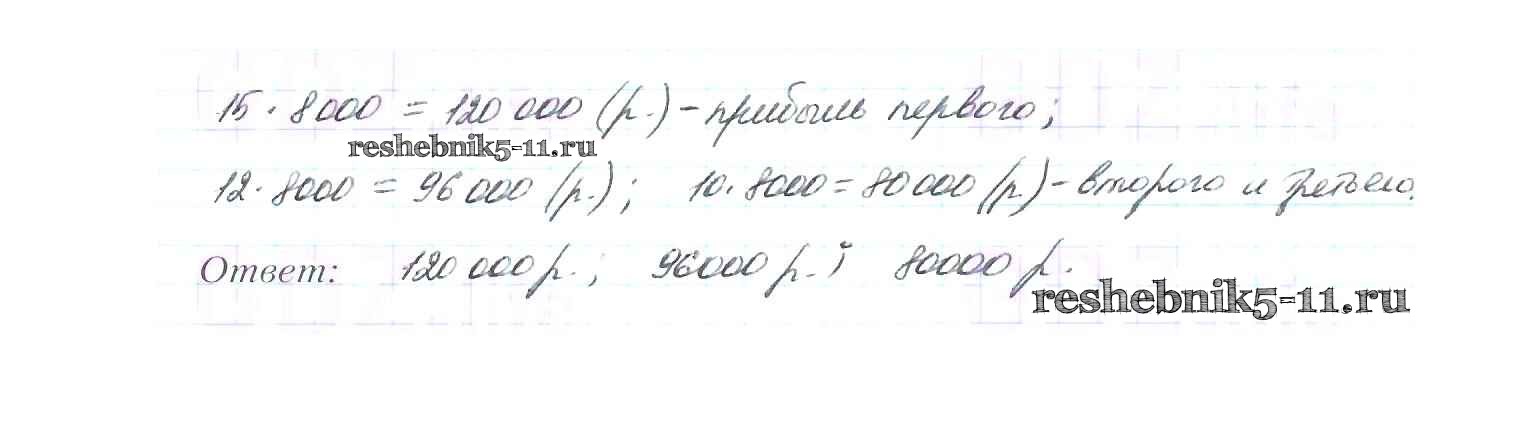 15 · 8000 = 120 000 (р.) – прибыль первого;
reshebnik5-11.ru
12 · 8000 = 96 000 (р.); 10 · 8000 = 80000 (р) – второго и третьего.
Ответ: 120 000 р.; 96000 р.; 80000 р.
reshebnik5-11.ru